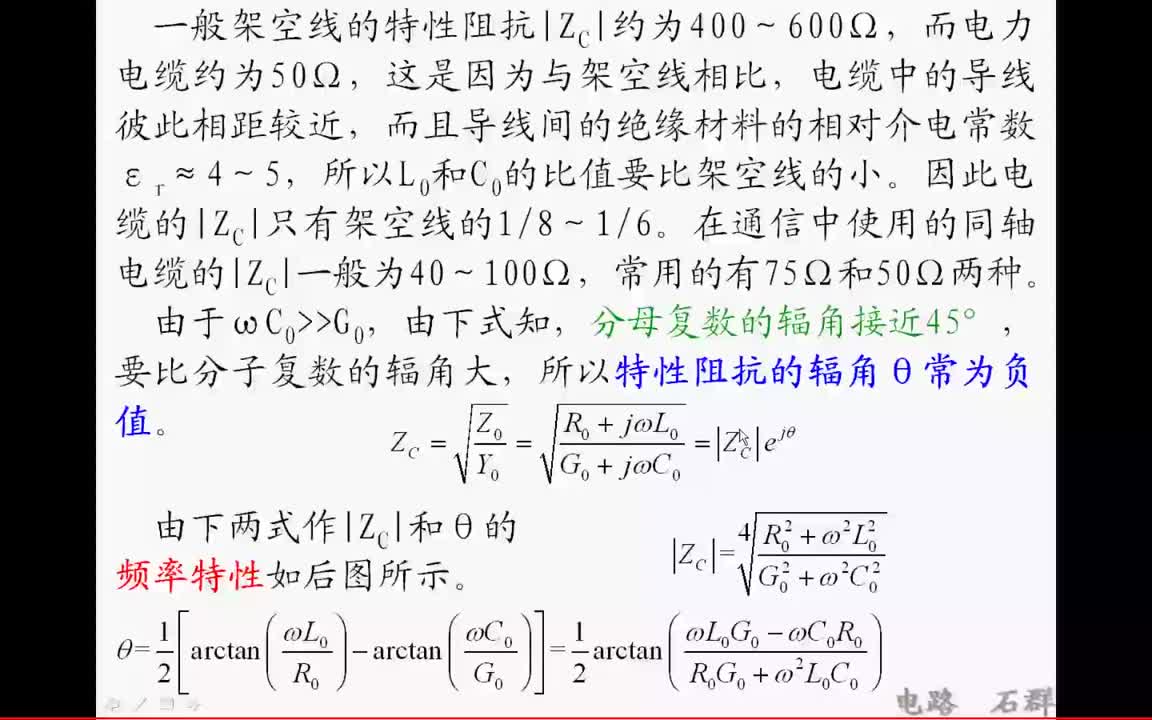 一般架空线的特性阻抗|Z_C|约为400～600Ω，而电力
电缆约为50Ω，这是因为与架空线相比，电缆中的导线
彼此相距较近，而且导线间的绝缘材料的相对介电常数
ε_r≈4～5，所以L_0和C_0的比值要比架空线的小。因此电
缆的|Z_C|只有架空线的1/8～1/6。在通信中使用的同轴
电缆的|Z_C|一般为40～100Ω，常用的有75Ω和50Ω两种。
由于ωC_0>>G_0，由下式知，分母复数的辐角接近45°，
要比分子复数的辐角大，所以特性阻抗的辐角θ常为负
值。
Z_C = √(Z_0/Y_0) = √((R_0 + jωL_0)/(G_0 + jωC_0)) = |Z_C| e^{jθ}
由下两式作|Z_C|和θ的
频率特性如后图所示。
|Z_C| = ⁴√((R_0^2 + ω^2L_0^2)/(G_0^2 + ω^2C_0^2))
θ = 1/2 [arctan(ωL_0/R_0) − arctan(ωC_0/G_0)] = 1/2 arctan((ωL_0G_0 − ωC_0R_0)/(R_0G_0 + ω^2L_0C_0))
电路 石群